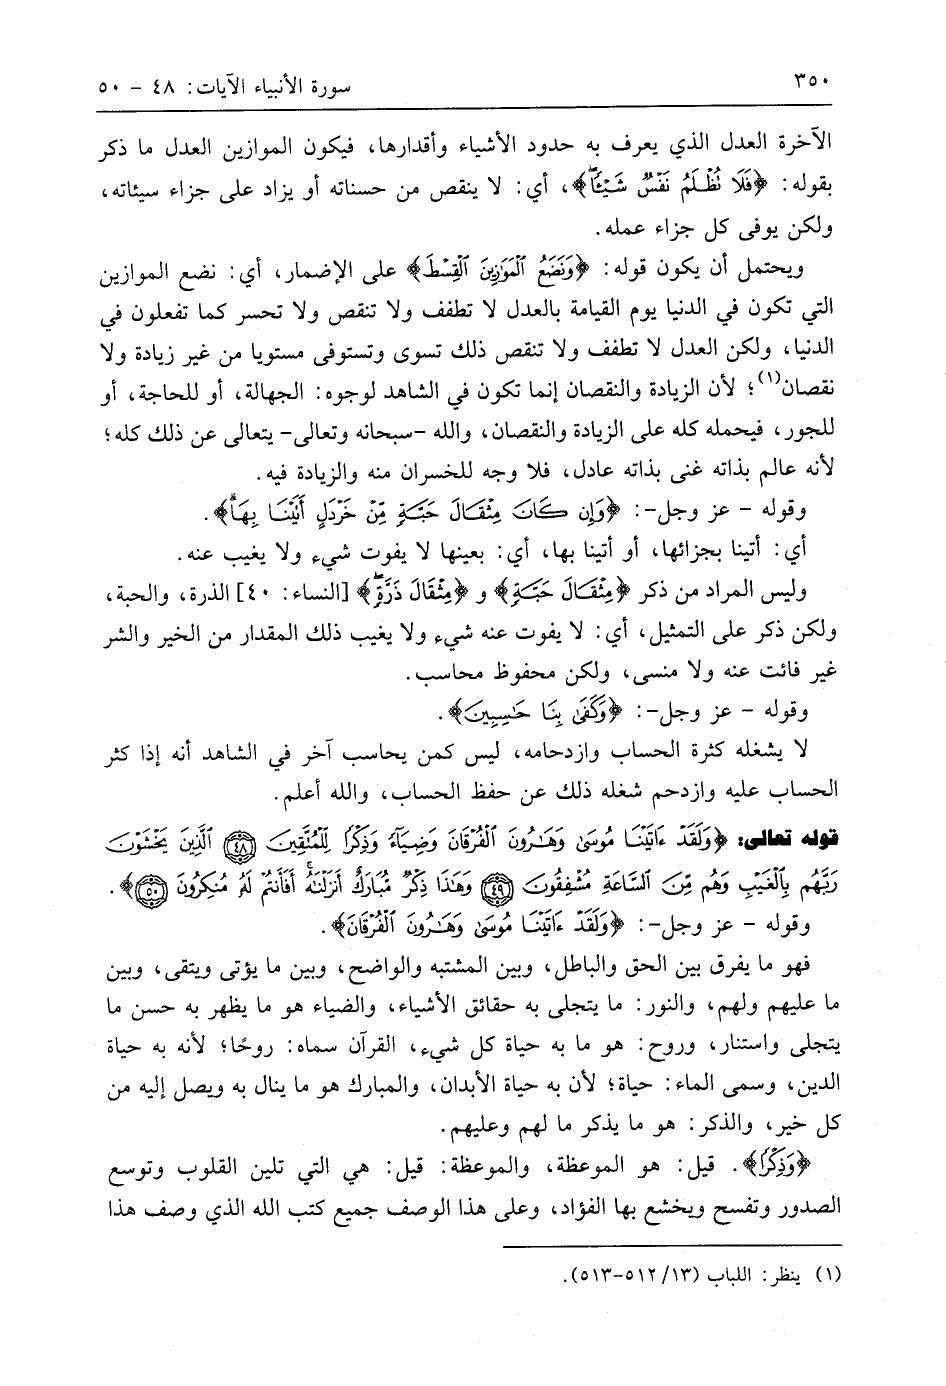 ٣٥٠ سورة الأنبياء الآيات: ٤٨ - ٥٠
الآخرة العدل الذي يعرف به حدود الأشياء وأقدارها، فيكون الموازين العدل ما ذكر
بقوله: ﴿فَلَا نُظْلَمُ نَفْسٌ شَيْئًا﴾، أي: لا ينقص من حسناته أو يزاد على جزاء سيئاته،
ولكن يوفى كل جزاء عمله.
ويحتمل أن يكون قوله: ﴿وَنَضَعُ ٱلْمَوَٰزِينَ ٱلْقِسْطَ﴾ على الإضمار، أي: نضع الموازين
التي تكون في الدنيا يوم القيامة بالعدل لا تطفف ولا تنقص ولا تحسر كما تفعلون في
الدنيا، ولكن العدل لا تطفف ولا تنقص ذلك تسوى وتستوفى مستويا من غير زيادة ولا
نقصان(١)؛ لأن الزيادة والنقصان إنما تكون في الشاهد لوجوه: الجهالة، أو للحاجة، أو
للجور، فيحمله كله على الزيادة والنقصان، والله -سبحانه وتعالى- يتعالى عن ذلك كله؛
لأنه عالم بذاته غنى بذاته عادل، فلا وجه للخسران منه والزيادة فيه.
وقوله - عز وجل-: ﴿وَإِن كَانَ مِثْقَالَ حَبَّةٍ مِّنْ خَرْدَلٍ أَتَيْنَا بِهَا﴾.
أي: أتينا بجزائها، أو أتينا بها، أي: بعينها لا يفوت شيء ولا يغيب عنه.
وليس المراد من ذكر ﴿مِثْقَالَ حَبَّةٍ﴾ و ﴿مِثْقَالَ ذَرَّةٍ﴾ [النساء: ٤٠] الذرة، والحبة،
ولكن ذكر على التمثيل، أي: لا يفوت عنه شيء ولا يغيب ذلك المقدار من الخير والشر
غير فائت عنه ولا منسى، ولكن محفوظ محاسب.
وقوله - عز وجل-: ﴿وَكَفَىٰ بِنَا حَٰسِبِينَ﴾.
لا يشغله كثرة الحساب وازدحامه، ليس كمن يحاسب آخر في الشاهد أنه إذا كثر
الحساب عليه وازدحم شغله ذلك عن حفظ الحساب، والله أعلم.
قوله تعالى: ﴿وَلَقَدْ ءَاتَيْنَا مُوسَىٰ وَهَٰرُونَ ٱلْفُرْقَانَ وَضِيَآءً وَذِكْرًا لِّلْمُتَّقِينَ ٤٨ ٱلَّذِينَ يَخْشَوْنَ
رَبَّهُم بِٱلْغَيْبِ وَهُم مِّنَ ٱلسَّاعَةِ مُشْفِقُونَ ٤٩ وَهَٰذَا ذِكْرٌ مُّبَارَكٌ أَنزَلْنَٰهُ أَفَأَنتُمْ لَهُۥ مُنكِرُونَ ٥٠﴾.
وقوله - عز وجل-: ﴿وَلَقَدْ ءَاتَيْنَا مُوسَىٰ وَهَٰرُونَ ٱلْفُرْقَانَ﴾.
فهو ما يفرق بين الحق والباطل، وبين المشتبه والواضح، وبين ما يؤتى ويتقى، وبين
ما عليهم ولهم، والنور: ما يتجلى به حقائق الأشياء، والضياء هو ما يظهر به حسن ما
يتجلى واستنار، وروح: هو ما به حياة كل شيء، القرآن سماه: روحًا؛ لأنه به حياة
الدين، وسمى الماء: حياة؛ لأن به حياة الأبدان، والمبارك هو ما ينال به ويصل إليه من
كل خير، والذكر: هو ما يذكر ما لهم وعليهم.
﴿وَذِكْرًا﴾. قيل: هو الموعظة، والموعظة: قيل: هي التي تلين القلوب وتوسع
الصدور وتفسح ويخشع بها الفؤاد، وعلى هذا الوصف جميع كتب الله الذي وصف هذا
(١) ينظر: اللباب (١٣/ ٥١٢-٥١٣).